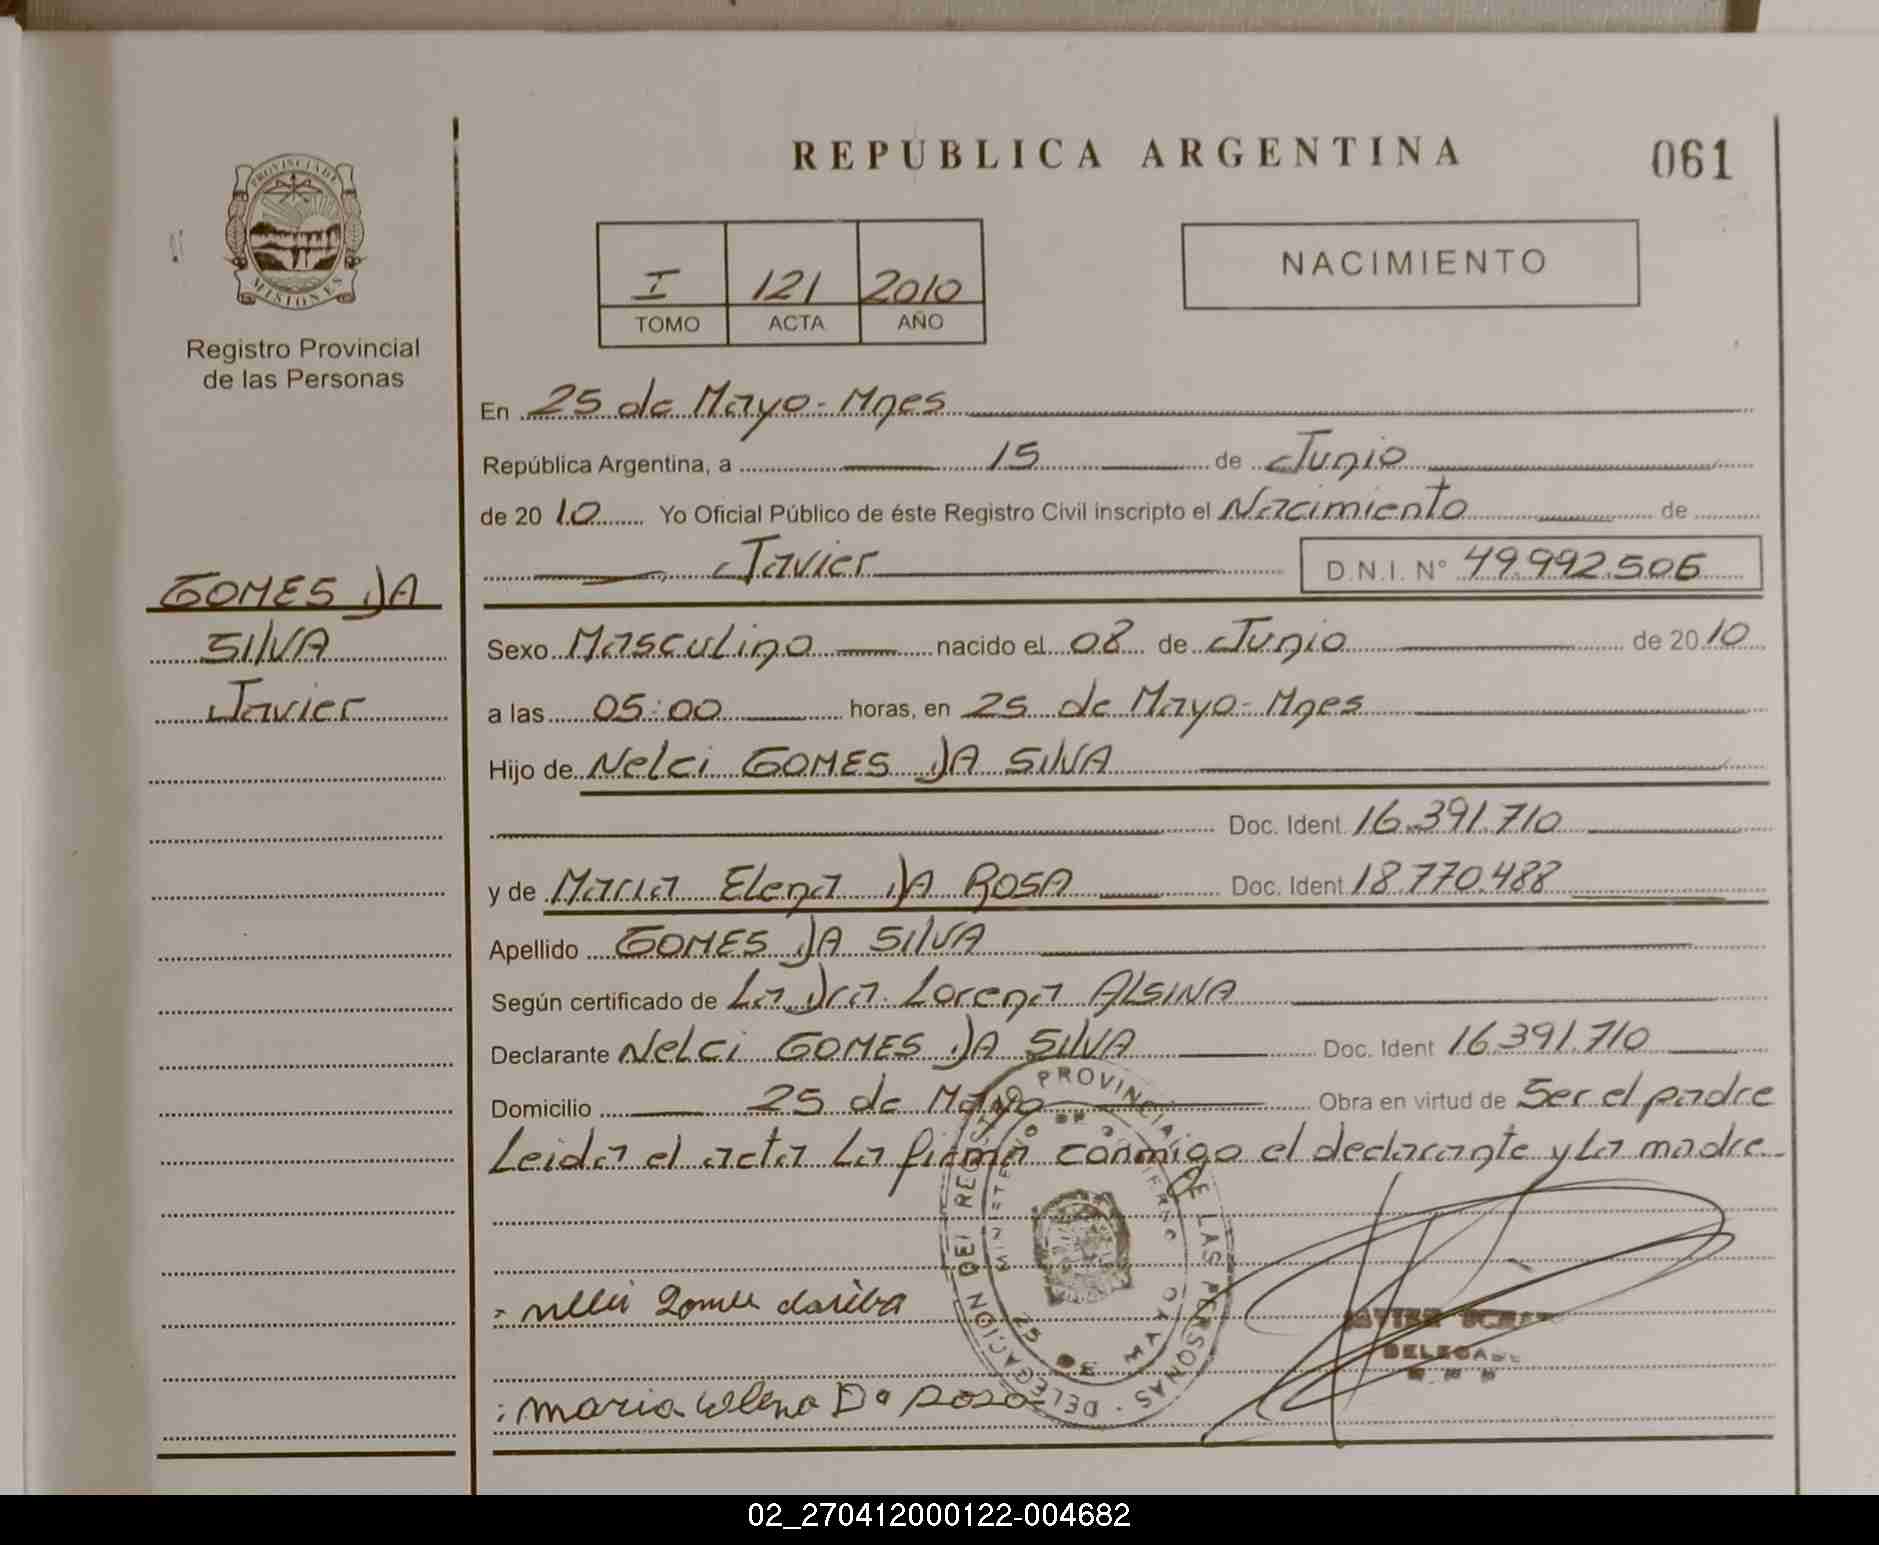 REPUBLICA ARGENTINA
061
PROVINCIA DE
MISIONES
Registro Provincial
de las Personas
I 121 2010
TOMO ACTA AÑO
NACIMIENTO
En 25 de Mayo - Mnes
República Argentina, a 15 de Junio
de 20 10 Yo Oficial Público de éste Registro Civil inscripto el Nacimiento de
Javier D.N.I. N° 49.992.506
GOMES DA
SILVA
Javier
Sexo Masculino nacido el 08 de Junio de 20 10
a las 05:00 horas, en 25 de Mayo - Mnes
Hijo de Nelci GOMES DA SILVA
Doc. Ident 16.391.710
y de Maria Elena DA ROSA Doc. Ident 18.770.488
Apellido GOMES DA SILVA
Según certificado de La Dra. Lorena ALSINA
Declarante Nelci GOMES DA SILVA Doc. Ident 16.391.710
Domicilio 25 de Mayo Obra en virtud de Ser el padre
Leida el acta La firman conmigo el declarante y La madre.
DELEGACION DEL REGISTRO PROVINCIAL DE LAS PERSONAS
25 DE MAYO
DELEGADO
maria elena Da rosa
02_270412000122-004682